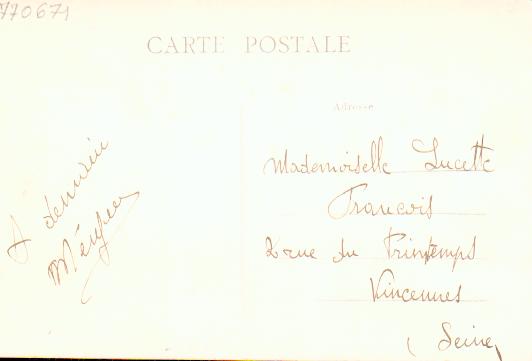 770671
CARTE POSTALE
Adresse
Mademoiselle Lucette
Francois
2 rue du Printemps
Vincennes
(Seine)
A demain